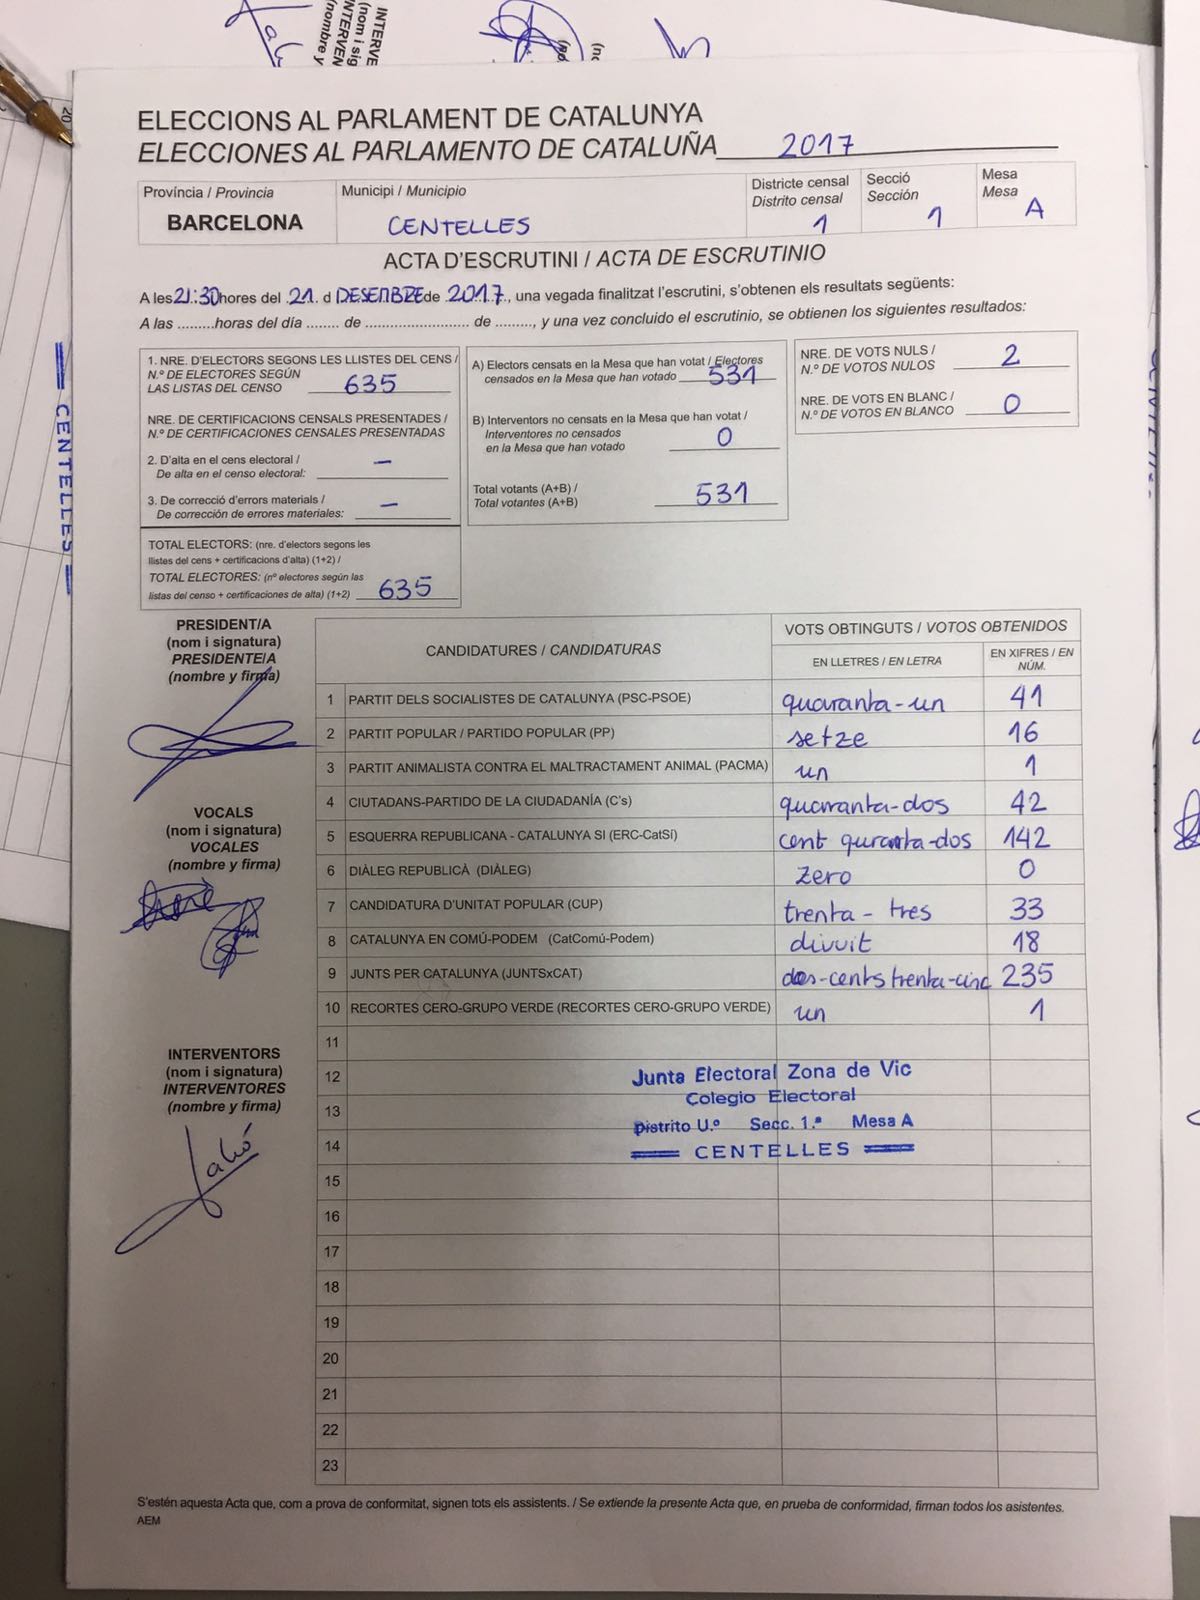 INTERVE
(nom i sig
INTERVEN
(nombre y
ELECCIONS AL PARLAMENT DE CATALUNYA
ELECCIONES AL PARLAMENTO DE CATALUÑA 2017
Província / Provincia
BARCELONA
Municipi / Municipio
CENTELLES
Districte censal
Distrito censal
1
Secció
Sección
1
Mesa
Mesa
A
ACTA D'ESCRUTINI / ACTA DE ESCRUTINIO
A les 21:30 hores del 21. d DESEMBRE de 2017, una vegada finalitzat l'escrutini, s'obtenen els resultats següents:
A las .........horas del día ........ de ......................... de ........., y una vez concluido el escrutinio, se obtienen los siguientes resultados:
1. NRE. D'ELECTORS SEGONS LES LLISTES DEL CENS /
N.º DE ELECTORES SEGÚN
LAS LISTAS DEL CENSO 635
NRE. DE CERTIFICACIONS CENSALS PRESENTADES /
N.º DE CERTIFICACIONES CENSALES PRESENTADAS
2. D'alta en el cens electoral /
De alta en el censo electoral: –
3. De correcció d'errors materials /
De corrección de errores materiales: –
TOTAL ELECTORS: (nre. d'electors segons les
llistes del cens + certificacions d'alta) (1+2) /
TOTAL ELECTORES: (nº electores según las
listas del censo + certificaciones de alta) (1+2) 635
A) Electors censats en la Mesa que han votat / Electores
censados en la Mesa que han votado 531
B) Interventors no censats en la Mesa que han votat /
Interventores no censados
en la Mesa que han votado 0
Total votants (A+B) /
Total votantes (A+B) 531
NRE. DE VOTS NULS /
N.º DE VOTOS NULOS 2
NRE. DE VOTS EN BLANC /
N.º DE VOTOS EN BLANCO 0
PRESIDENT/A
(nom i signatura)
PRESIDENTE/A
(nombre y firma)
VOCALS
(nom i signatura)
VOCALES
(nombre y firma)
INTERVENTORS
(nom i signatura)
INTERVENTORES
(nombre y firma)
CANDIDATURES / CANDIDATURAS
VOTS OBTINGUTS / VOTOS OBTENIDOS
EN LLETRES / EN LETRA
EN XIFRES / EN
NÚM.
1 PARTIT DELS SOCIALISTES DE CATALUNYA (PSC-PSOE) quaranta-un 41
2 PARTIT POPULAR / PARTIDO POPULAR (PP) setze 16
3 PARTIT ANIMALISTA CONTRA EL MALTRACTAMENT ANIMAL (PACMA) un 1
4 CIUTADANS-PARTIDO DE LA CIUDADANÍA (C's) quarranta-dos 42
5 ESQUERRA REPUBLICANA - CATALUNYA SI (ERC-CatSí) cent quranta-dos 142
6 DIÀLEG REPUBLICÀ (DIÀLEG) zero 0
7 CANDIDATURA D'UNITAT POPULAR (CUP) trenta - tres 33
8 CATALUNYA EN COMÚ-PODEM (CatComú-Podem) divuit 18
9 JUNTS PER CATALUNYA (JUNTSxCAT) dos-cents trenta-cinc 235
10 RECORTES CERO-GRUPO VERDE (RECORTES CERO-GRUPO VERDE) un 1
11
12
13
14
15
16
17
18
19
20
21
22
23
Junta Electoral Zona de Vic
Colegio Electoral
Distrito U.º Secc. 1.ª Mesa A
CENTELLES
CENTELLES
S'estén aquesta Acta que, com a prova de conformitat, signen tots els assistents. / Se extiende la presente Acta que, en prueba de conformidad, firman todos los asistentes.
AEM